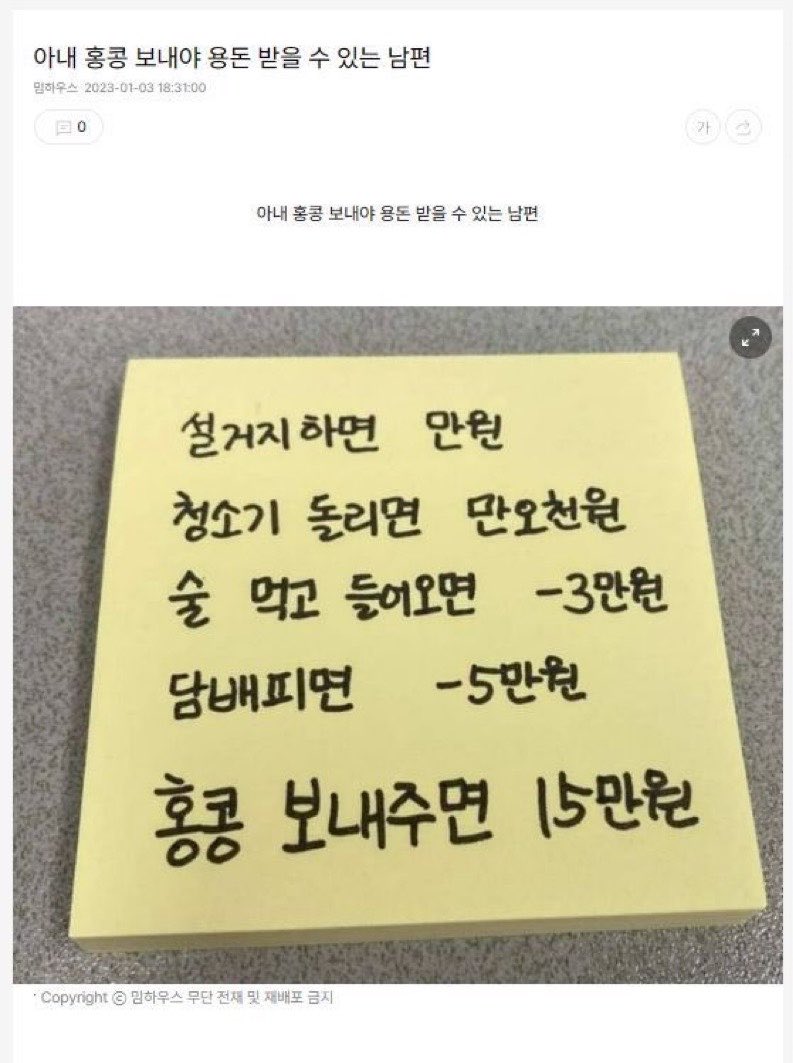 아내 홍콩 보내야 용돈 받을 수 있는 남편
맘하우스 2023-01-03 18:31:00
0
가
아내 홍콩 보내야 용돈 받을 수 있는 남편
설거지하면 만원
청소기 돌리면 만오천원
술 먹고 들어오면 -3만원
담배피면 -5만원
홍콩 보내주면 15만원
· Copyright ⓒ 맘하우스 무단 전재 및 재배포 금지